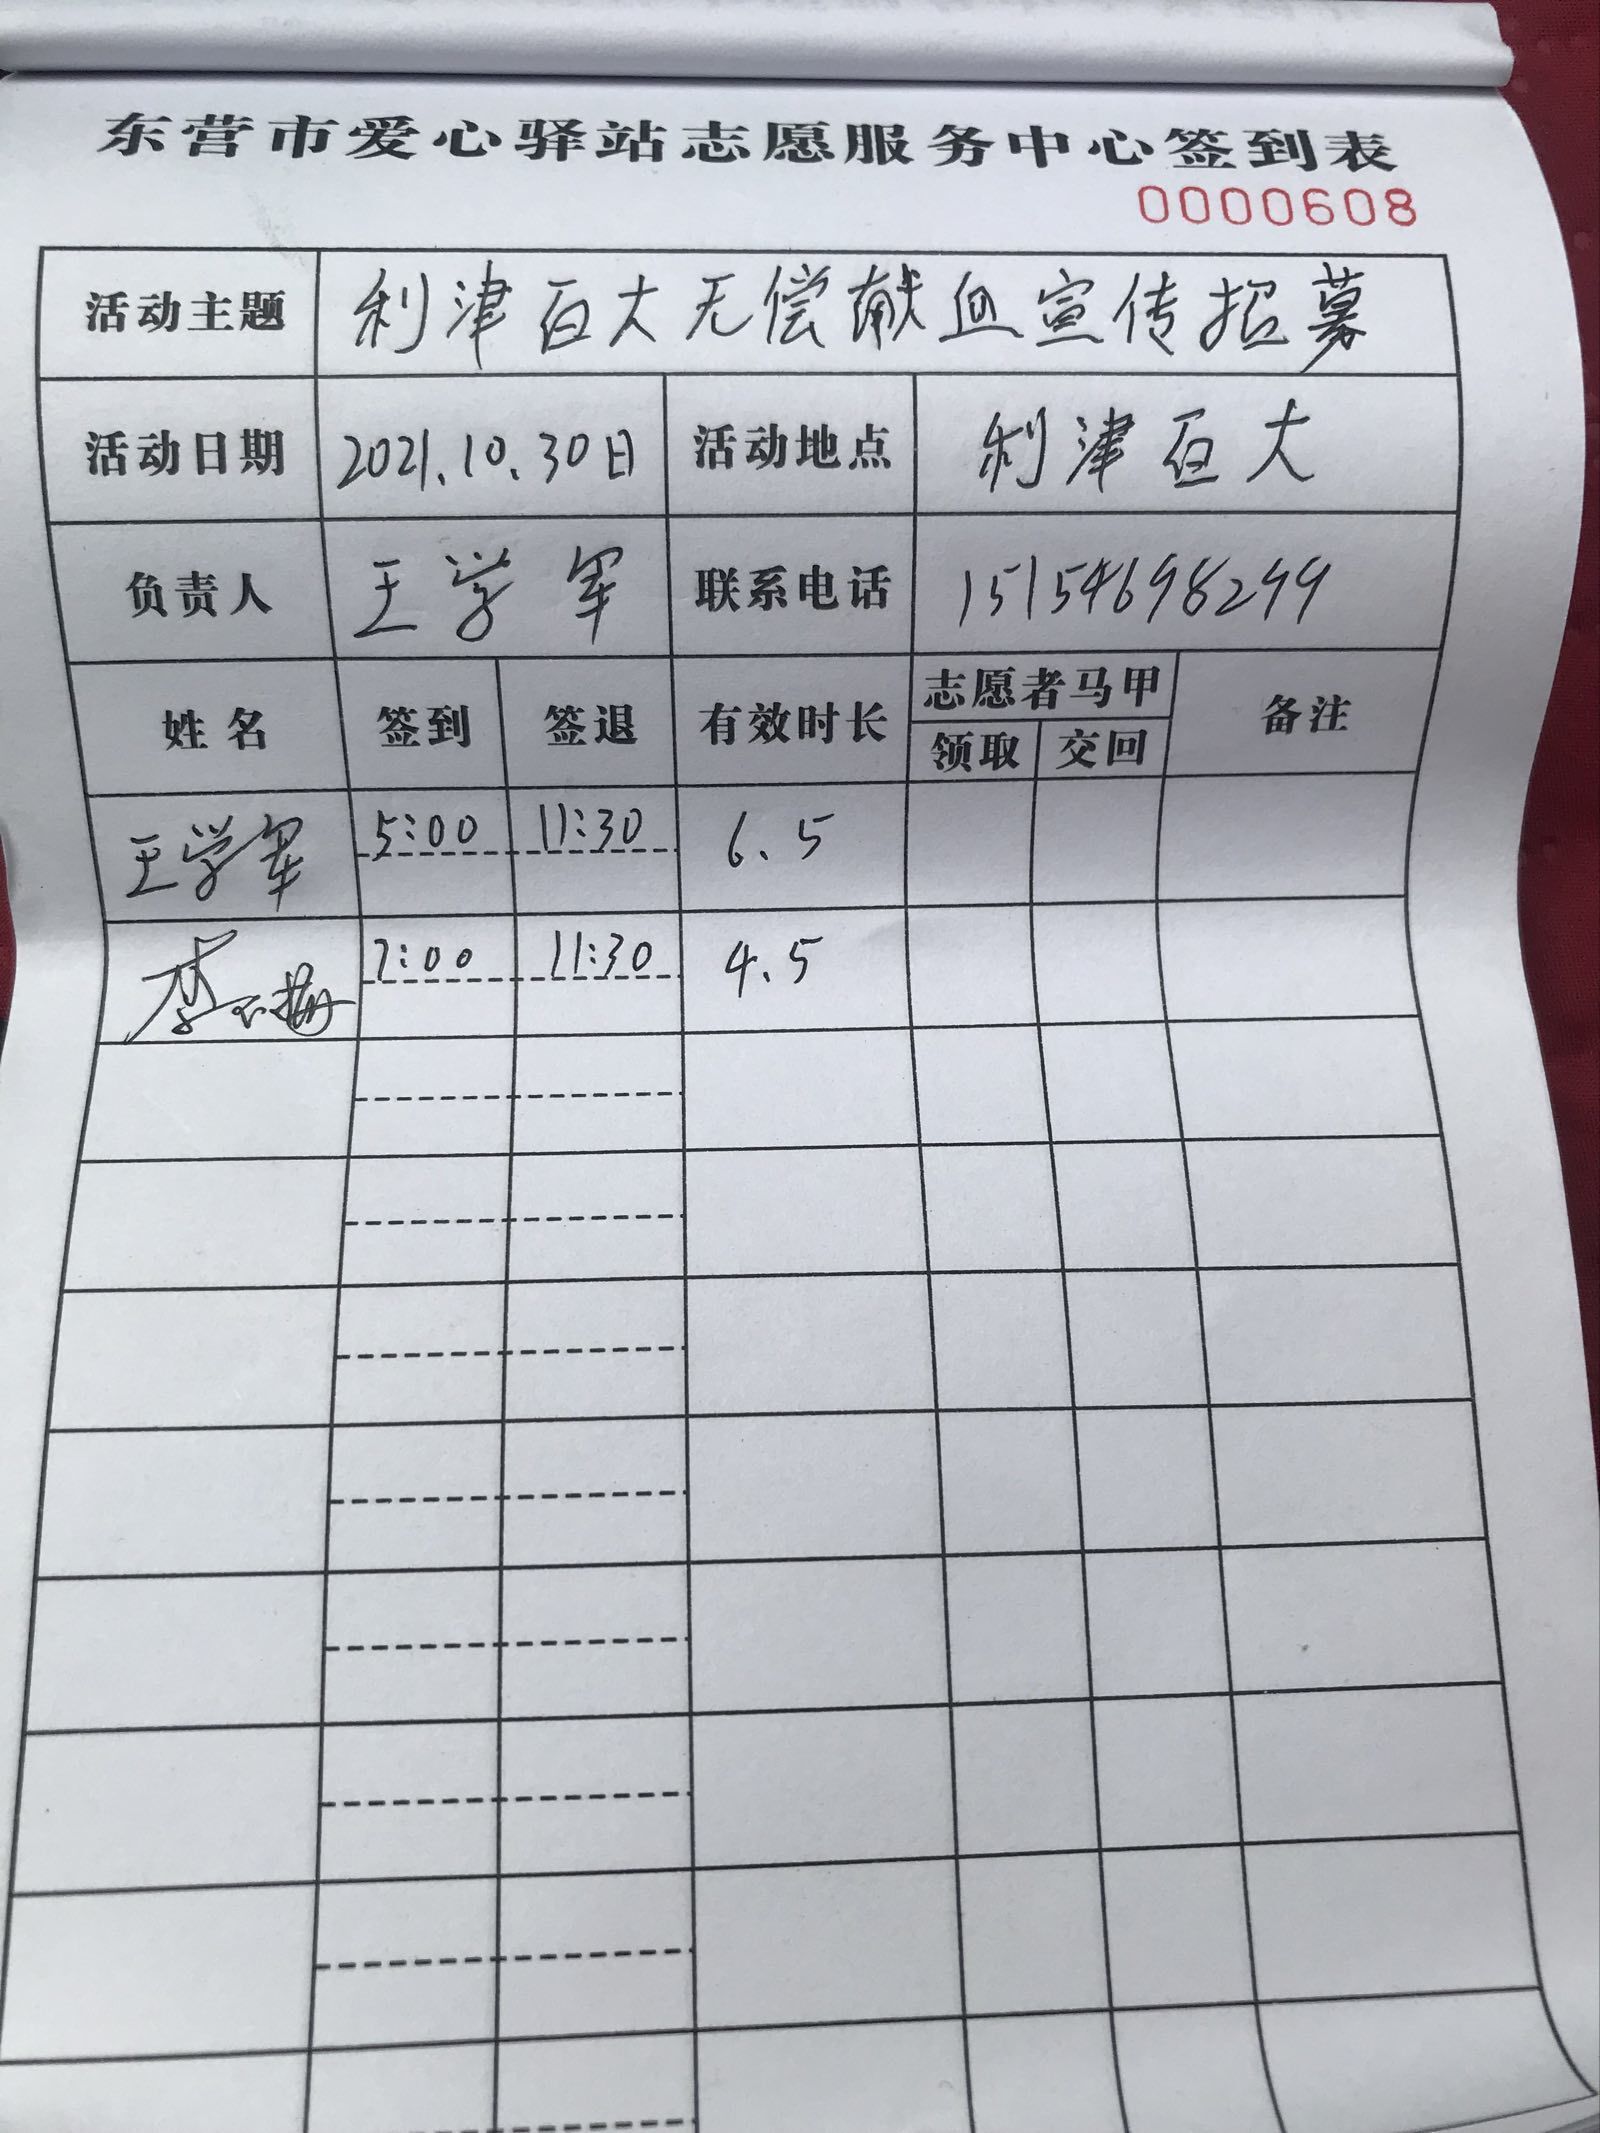 东营市爱心驿站志愿服务中心签到表
0000608
活动主题 利津百大无偿献血宣传招募
活动日期 2021.10.30日 活动地点 利津百大
负责人 王学军 联系电话 15154698299
姓名 签到 签退 有效时长 志愿者马甲 备注
领取 交回
王学军 5:00 11:30 6.5
李 7:00 11:30 4.5